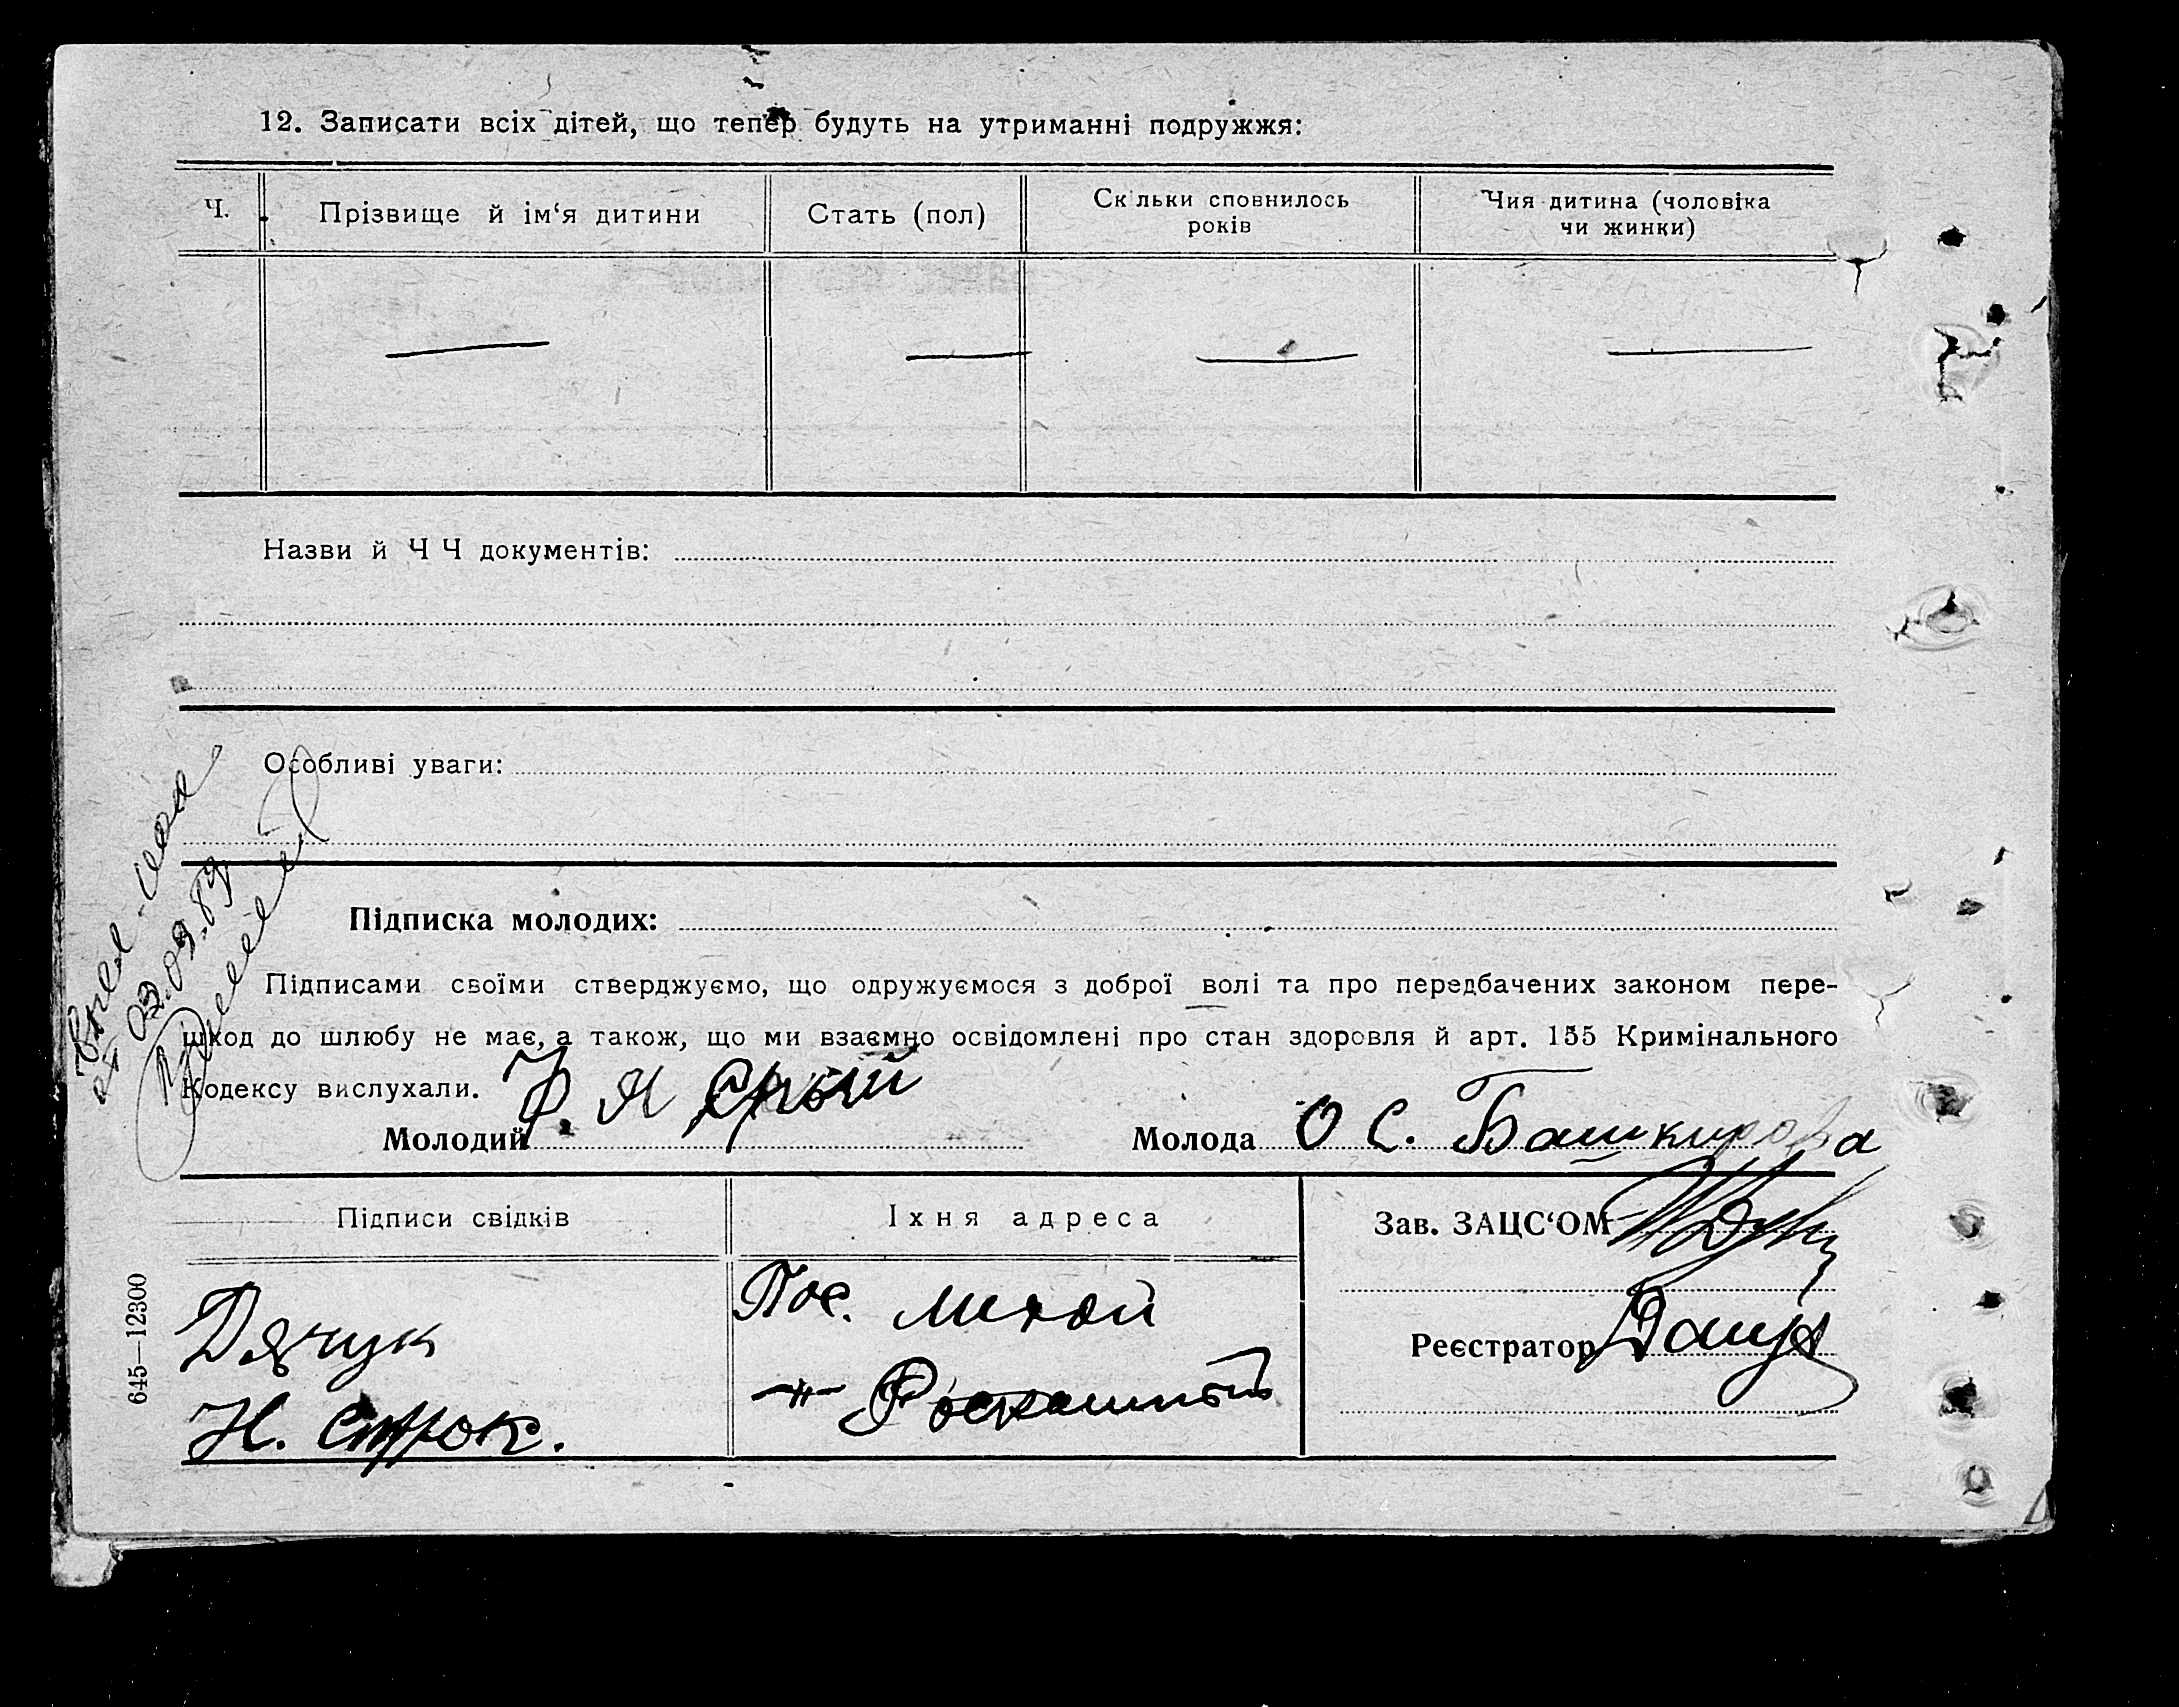 12. Записати всіх дітей, що тепер будуть на утриманні подружжя:
Ч.
Прізвище й ім‘я дитини
Стать (пол)
Скільки сповнилось
років
Чия дитина (чоловіка
чи жинки)
Назви й ЧЧ документів:
Особливі уваги:
Підписка молодих:
Підписами своїми стверджуємо, що одружуємося з доброї волі та про передбачених законом пере-
шкод до шлюбу не має, а також, що ми взаємно освідомлені про стан здоровля й арт. 155 Кримінального
Кодексу вислухали.
Молодий
Молода О С. Башкирова
Підписи свідків
Їхня адреса
Зав. ЗАЦС‘ОМ
Дячук
Пос.
Реєстратор
Н. Строк.
645—12300